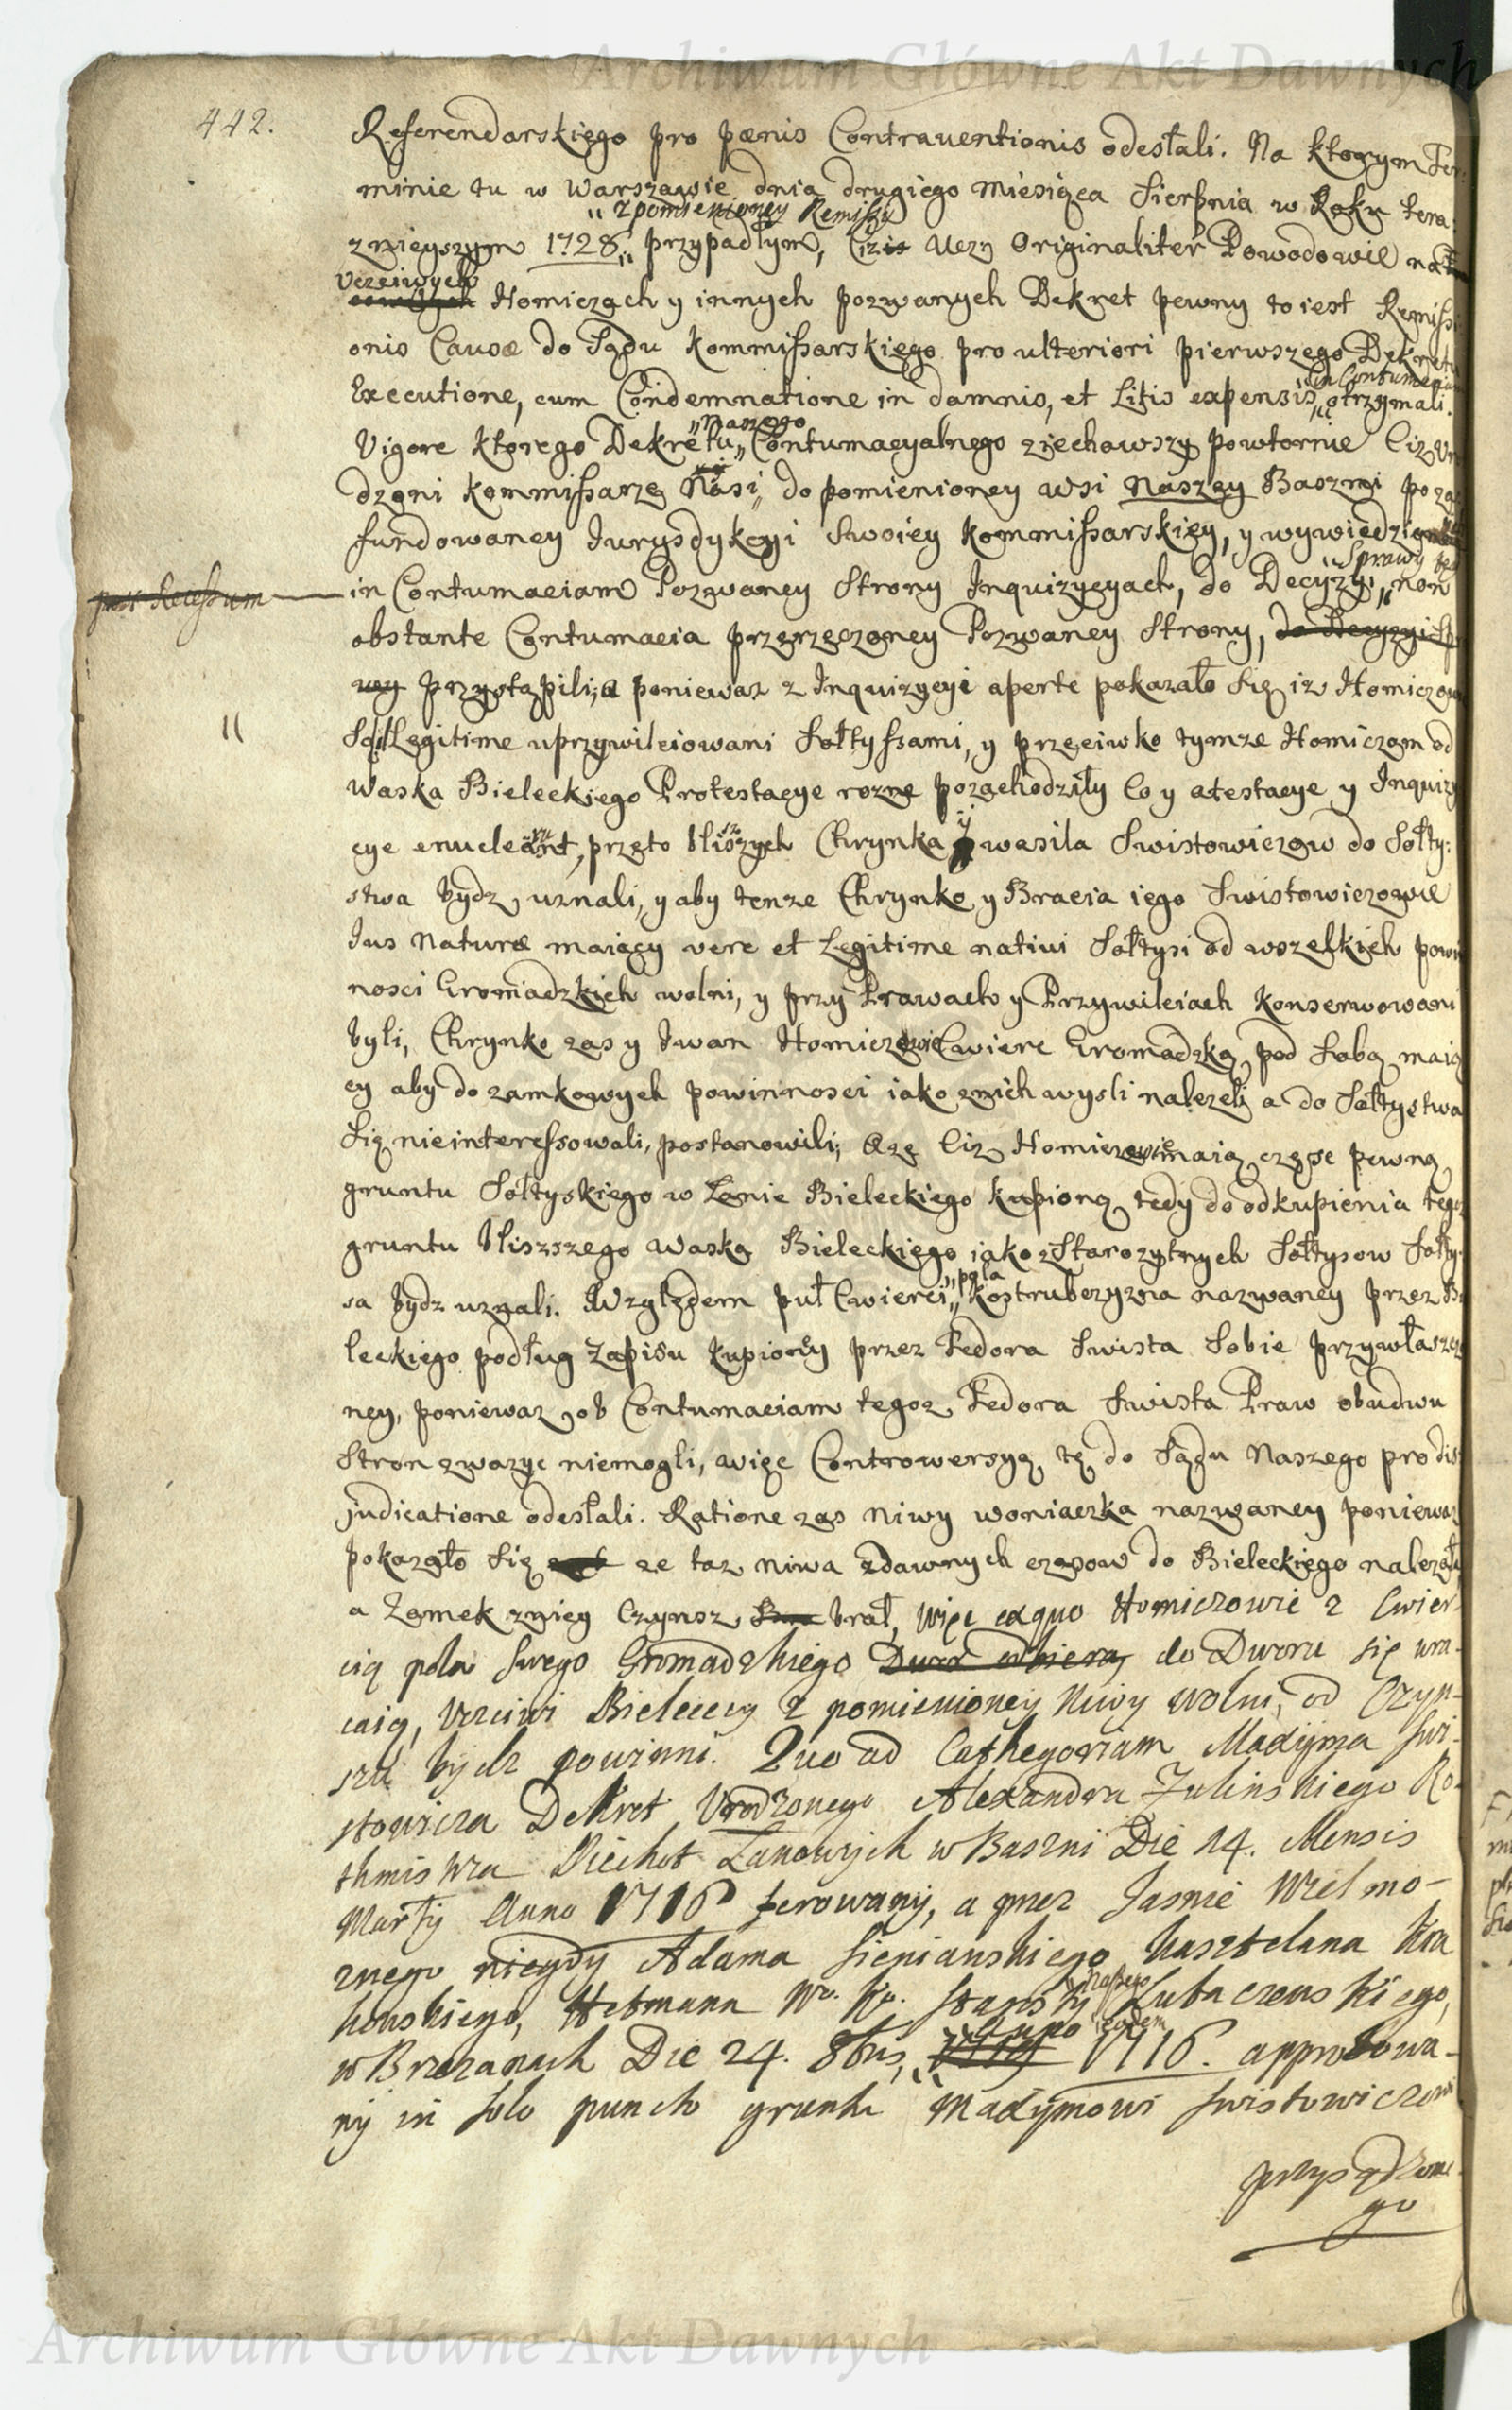 Archiwum Główne Akt Dawnych
442.
Referendarskięgo pro pœnis Contrauentionis odesłali. Na ktorym Ter:
minie tu w Warszawie dnia drugiego Miesiąca Sierpnia w Roku tera:
z pomienioney Remissy
znieyszym 1728 przypadłym, Ciż Uczn Originaliter Powodowie na
Uczciwych
Homiczach y innych pozwanych Dekret pewny to iest Remissi
onis Causæ do Sądu Kommissarskięgo pro ulteriori pierwszego Dekretu
in Contumaciam
Executione, cum Condemnatione in damnis, et Litis expensis otrzymali.
naszego
Vigore ktorego Dekretu Contumacyalnego ziechawszy powtornie Ciż Uro
dzeni Kommissarze Nasi do pomienioney wsi Naszey Baszni po za
fundowaney Jurysdykcyi Swoiey Kommissarskięy, y wywiedzionych
Sprawy tey
post Recessum
in Contumaciam Pozwaney Strony Inquizycyach, do Decyzyi non
obstante Contumacia przerzeczoney Pozwaney Strony, do Decyzyi Spra
wy przystąpili; a poniewaz z Inquizycyi aperte pokazało się iz Homiczowie
są Legitime uprzywileiowani Sołtyssami, y przeciwko tymze Homiczom od
Waska Bieleckiego Protestacye rozne pozachodziły Co y atestacye y Inquizy
cye enucleant, przeto bliszych Chrynka y wasila Swistowiczow do Sołty:
stwa bydz uznali, y aby tenze Chrynko y Bracia iego Swistowiczowie
Jus Naturæ maiący vere et Legitime natiui Sołtysi od wszelkich powin
nosci Gromadzkich wolni, y przy Prawach y Przywileiach konserwowani
byli, Chrynko zas y Iwan Homiczowie Cwierc Gromadzką pod Sobą maią
cy aby do zamkowych powinnosci iako z nich wyśli nalezeli a do Sołtystwa
się nie interessowali, postanowili; A ze Ciz Homiczowie maią częsc pewną
gruntu Sołtyskiego w Łanie Bieleckiego kupioną tedy do odkupienia tego
gruntu bliszszego Waska Bieleckiego iako z Starozytnych Sołtysow Sołty
pola
sa bydz uznali. Względem puł Cwierci Kostrubczyzna nazwaney przez Bie
leckiego podług Zapisu kupioney przez Fedora Swista Sobie przywłaszczo
ney, poniewaz ob Contumaciam tegoz Fedora Swista Praw obudwu
Stron zwazyc niemogli, więc Controwersyą tę do Sądu Naszego pro dis
judicatione odesłali. Ratione zas Niwy woniaczka nazwaney poniewaz
pokazało się ze taz niwa zdawnych czasow do Bieleckiego nalezała
a Zamek z niey Czynsz brał, więc ex quo Homiczowie z Cwier-
cią pola swego Gromadzkiego do Dworu się wra-
caią, Uczciwi Bieleccy z pomienioney Niwy wolni od Czyn-
szu bydz powinni. Quo ad Cathegoriam Madyma Swi-
stowicza Dekret Urodzonego Alexandra Zulinskiego Ro-
thmistrza Piechot Łanowych w Baszni Die 14. Mensis
Marty Anno 1716 ferowany, a przez Jasnie Wielmo-
znego niegdy Adama Sieniawskiego Kasztelana Kra
kowskiego, Hetmana W. K. Starosty Lubaczewskiego,
w Brzezanach Die 24. 8bris, Anno 1716. approbowa-
ny in solo puncto gruntu Madymowi Swistowiczowi
przysądzone-
go
Archiwum Główne Akt Dawnych